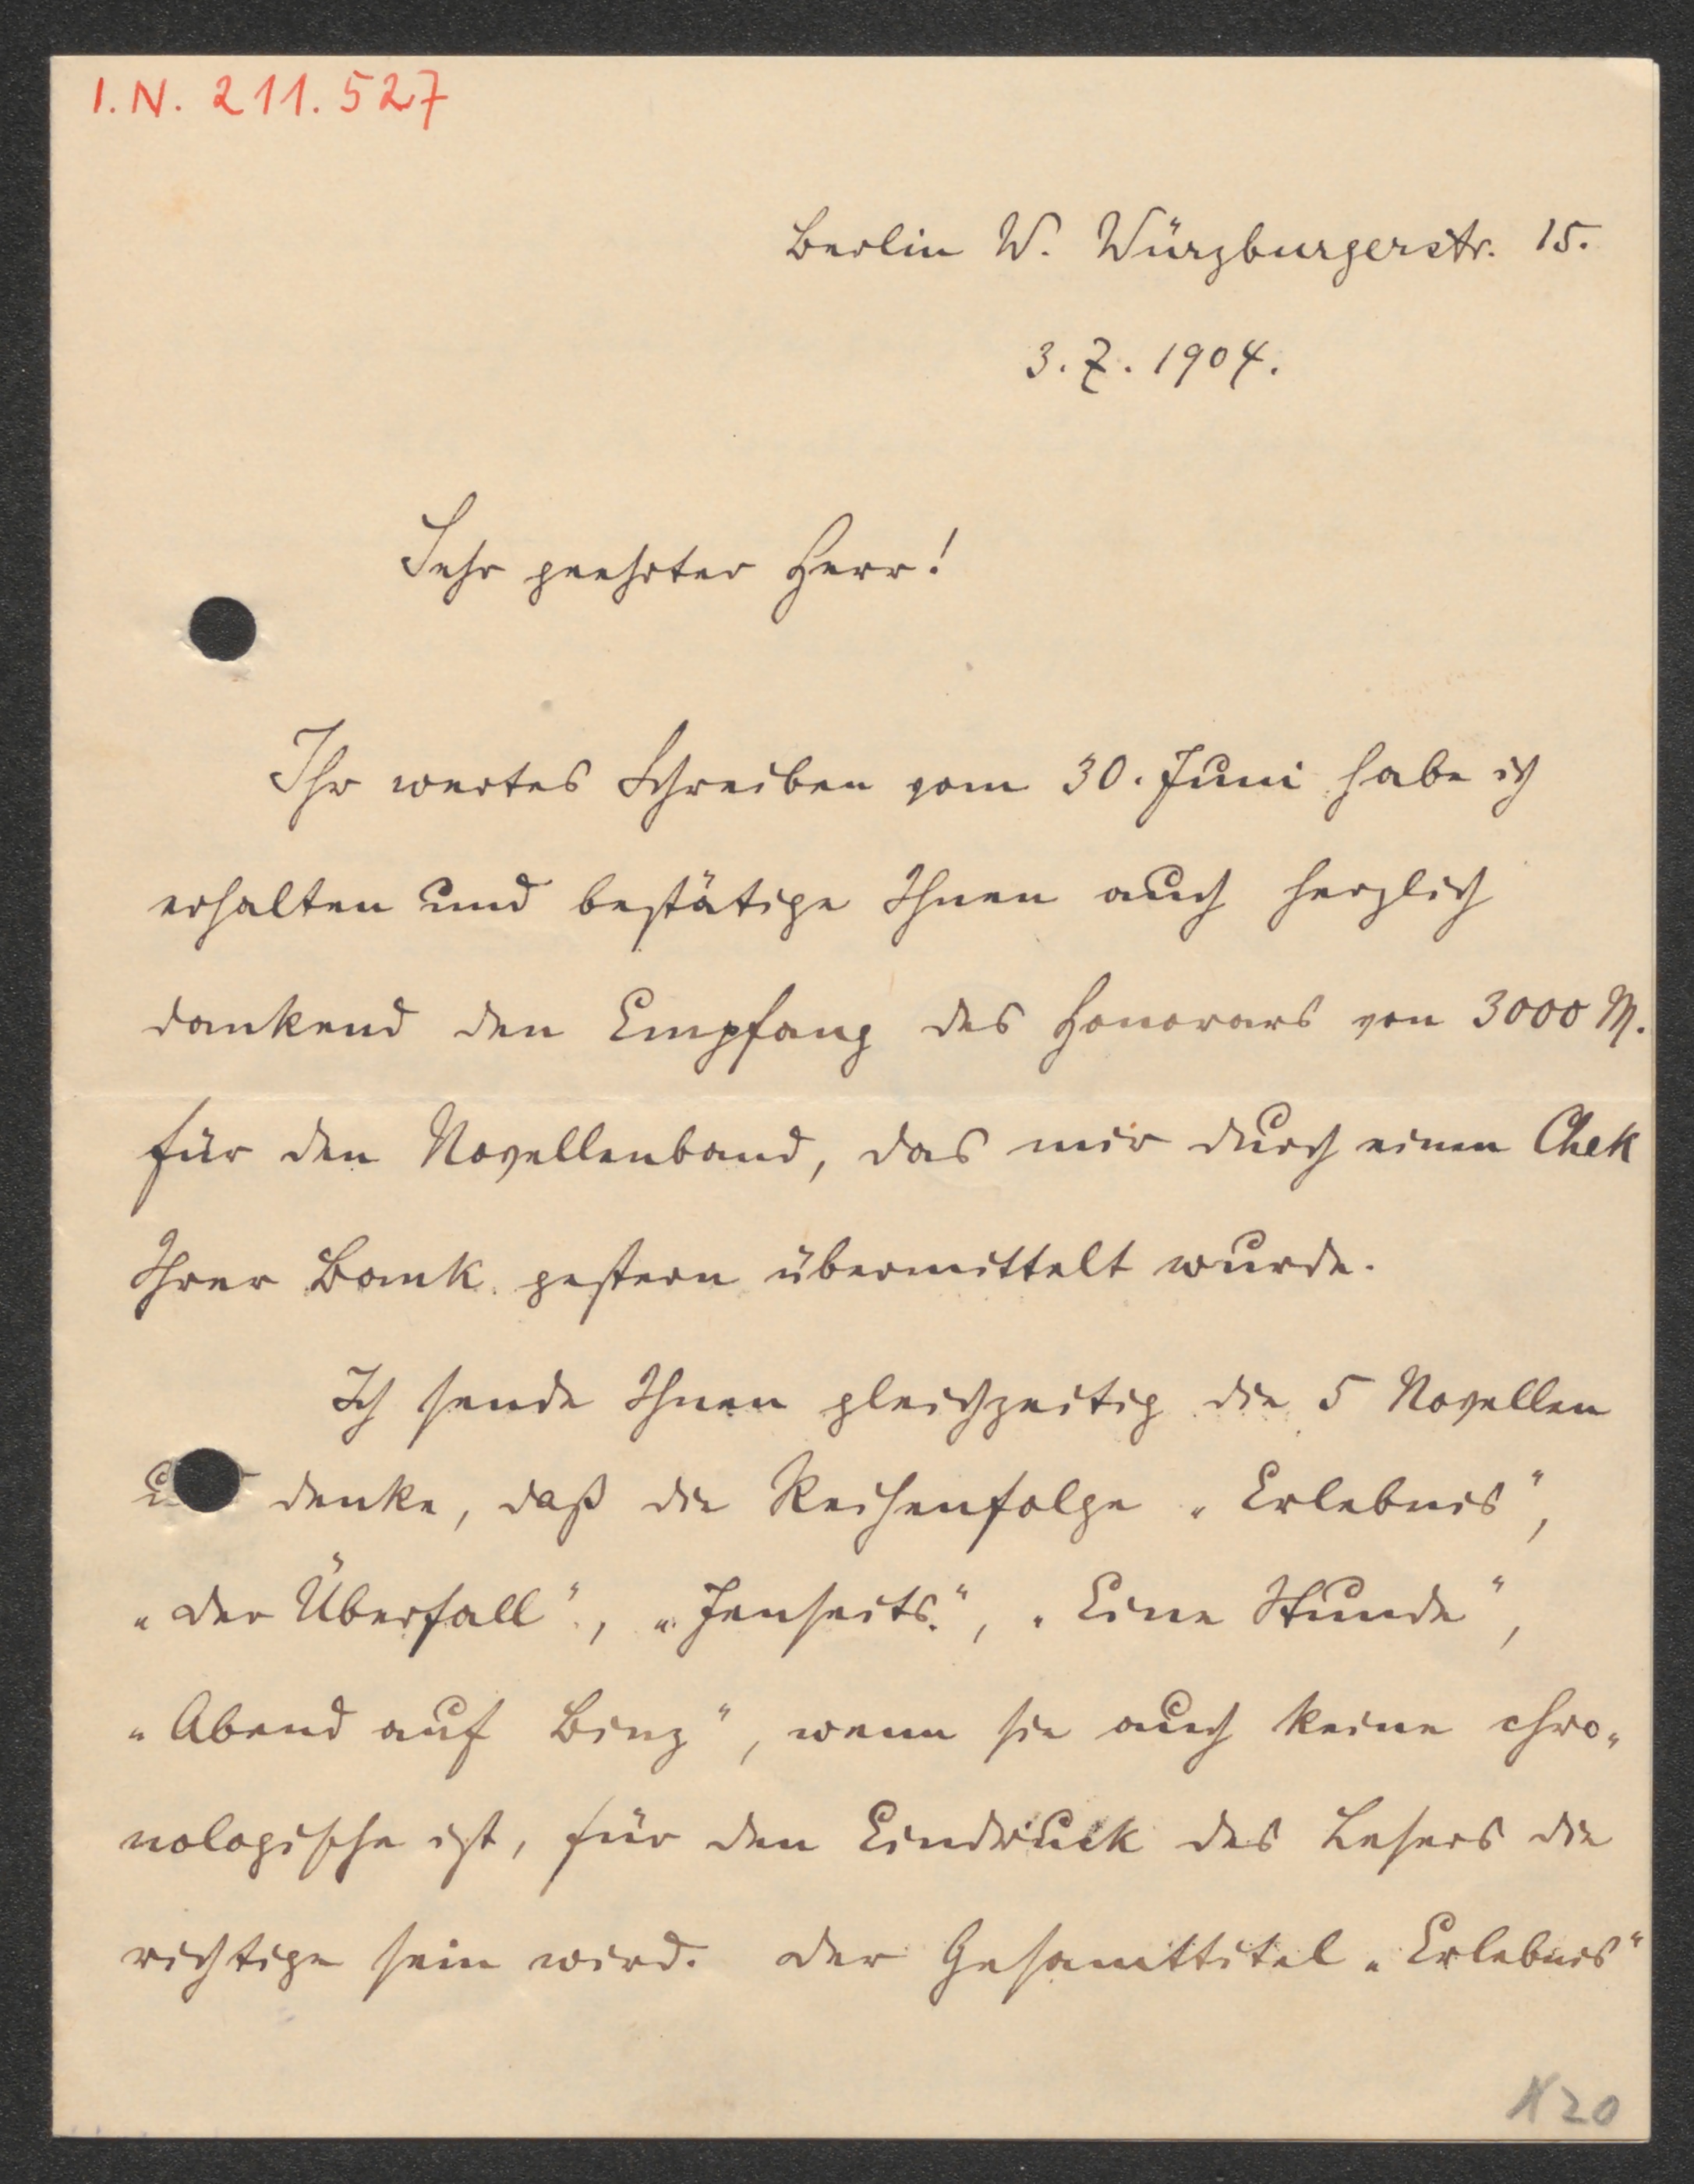 I.N. 211.527
Berlin W. Würzburgerstr. 15.
3.7.1904.
Sehr geehrter Herr!
Ihr wertes Schreiben vom 30. Juni habe ich
erhalten und bestätige Ihnen auch herzlich
dankend den Empfang des Honorars von 3000 M.
für den Novellenband, das mir durch einen Chek
Ihrer Bank gestern übermittelt wurde.
Ich sende Ihnen gleichzeitig die 5 Novellen
denke, daß die Reihenfolge „Erlebnis“,
„Der Überfall“, „Jenseits“, „Eine Stunde“,
„Abend auf Binz“, wenn sie auch keine chro„
nologische ist, für den Eindruck des Lesers die
richtige sein wird. Der Gesamttitel „Erlebnis“
20